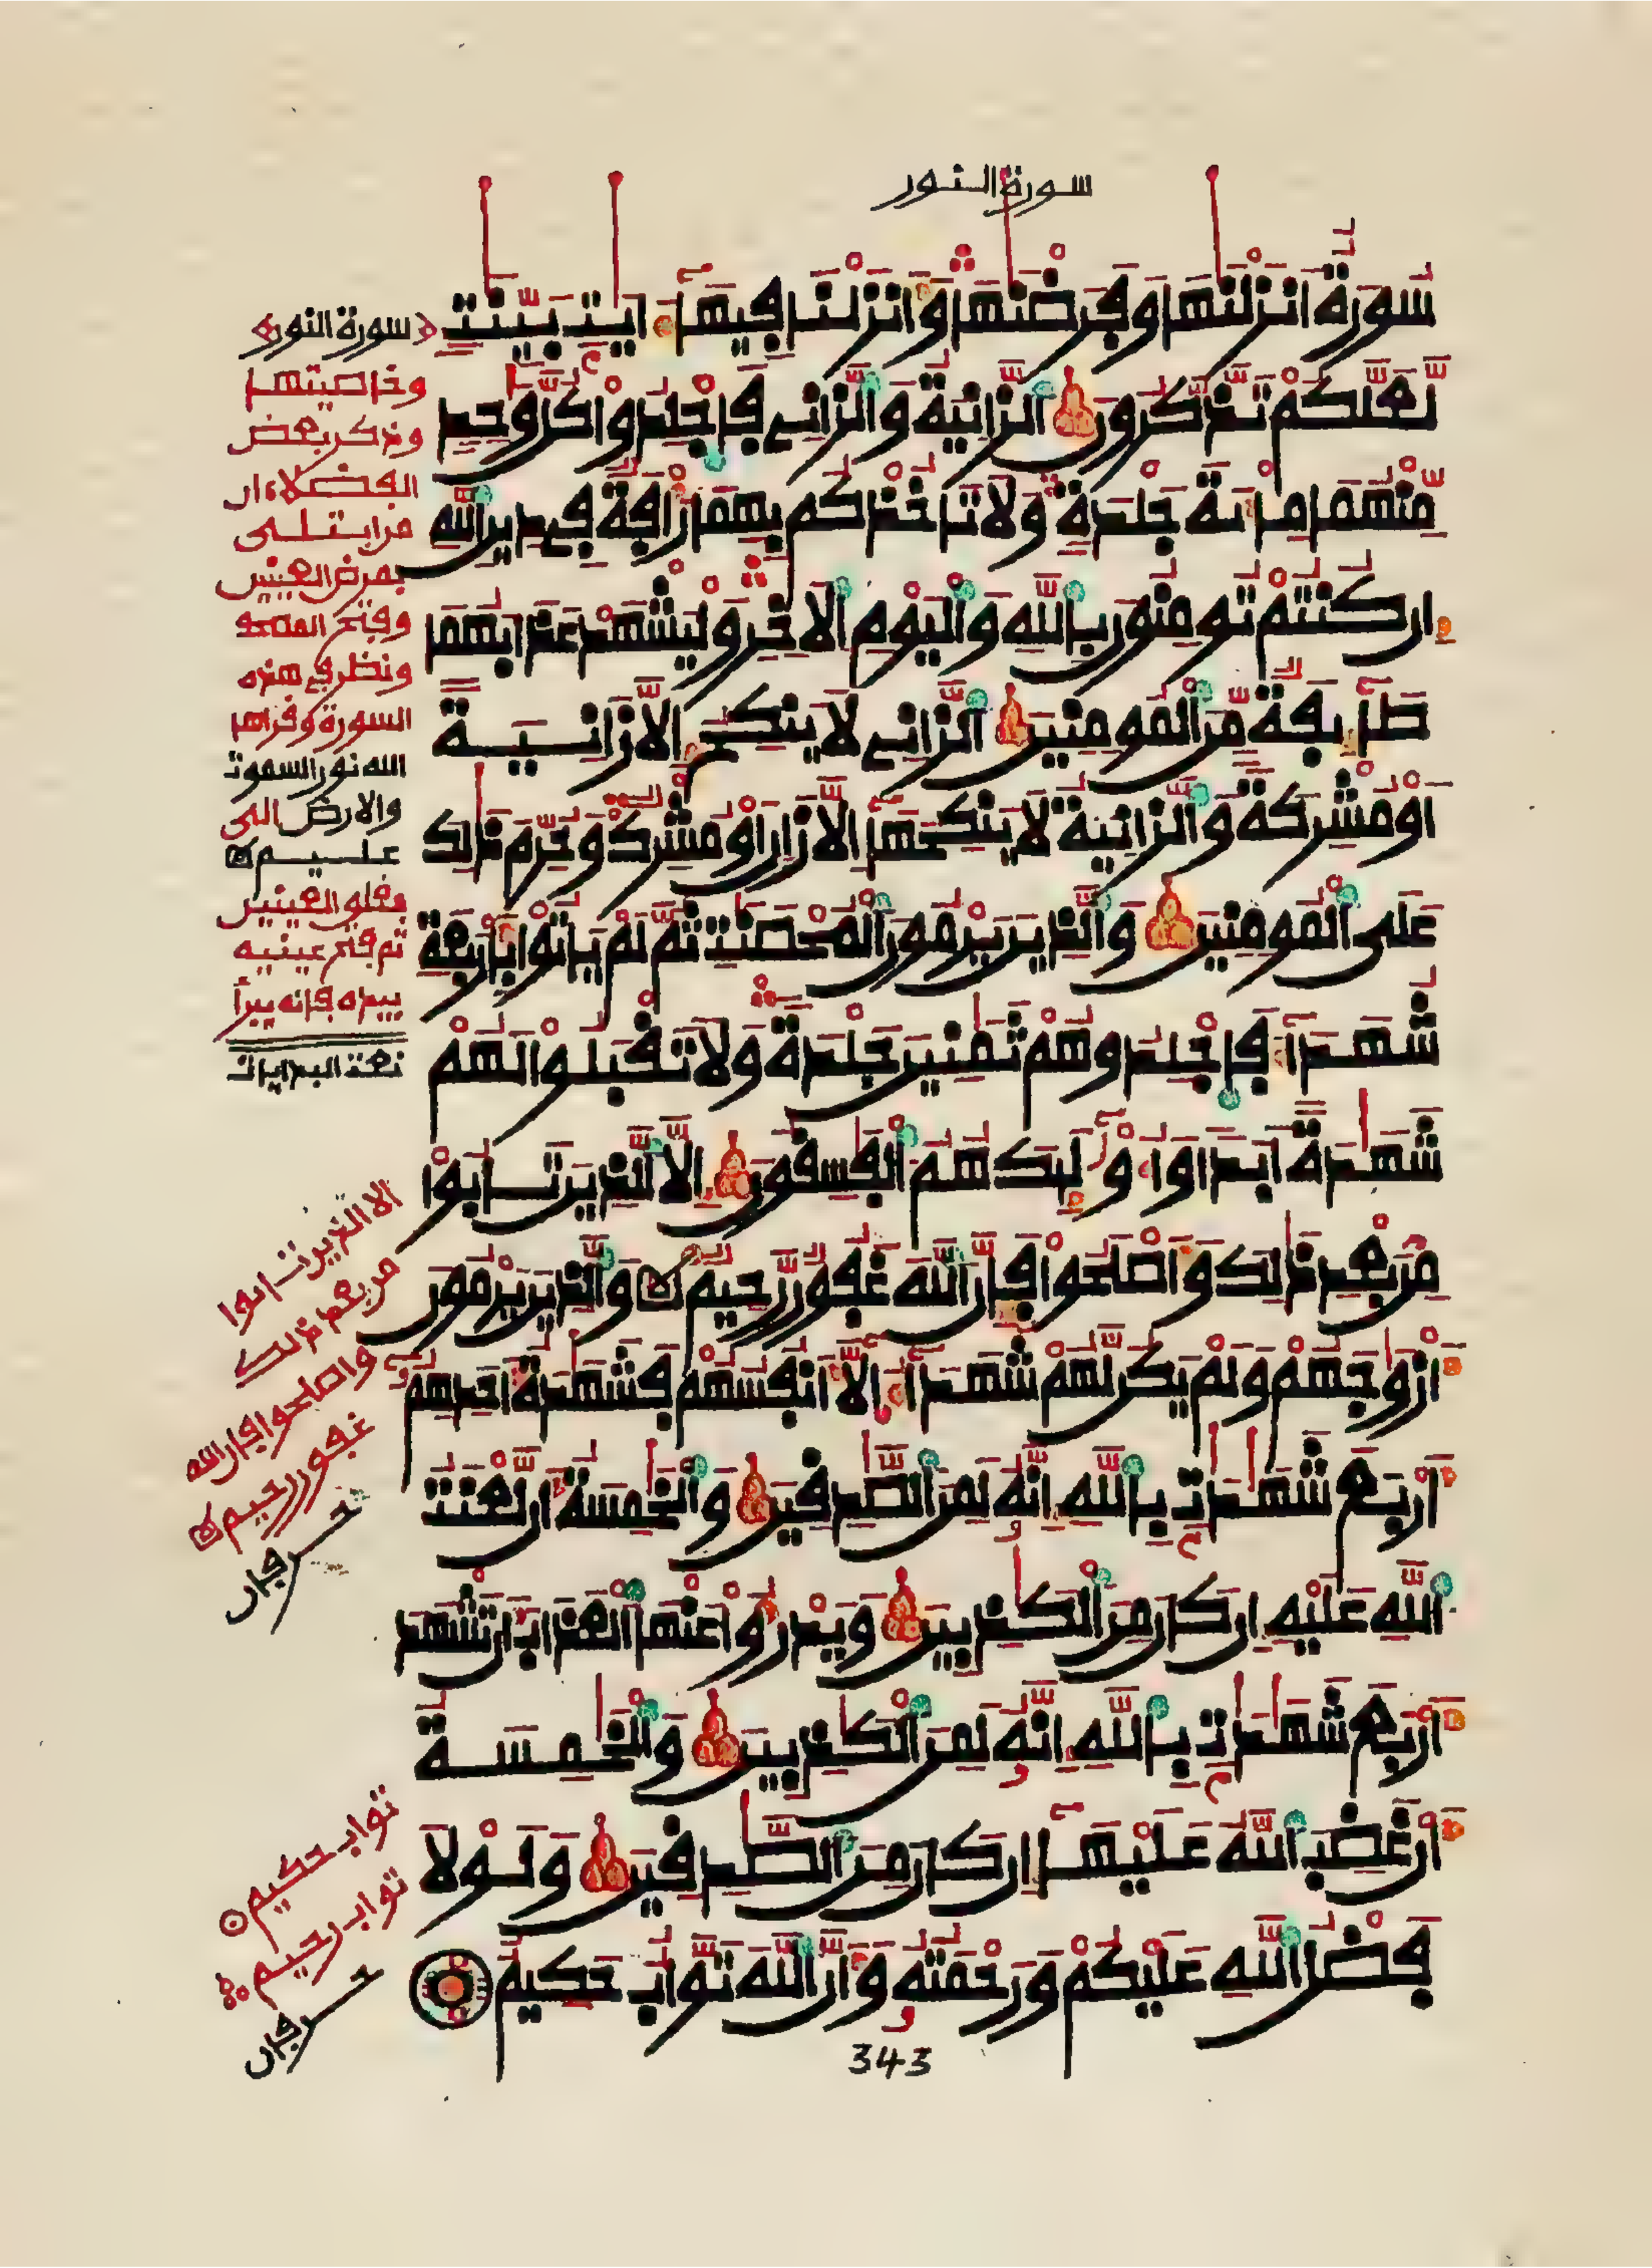 سورة النور
سُورَةٌ اَنزَلْنَٰهَا وَفَرَضْنَٰهَا وَأَنزَلْنَا فِيهَآ ءَايَٰتِۭ بَيِّنَٰتٖ
لَّعَلَّكُمْ تَذَّكَّرُونَ اَ۬لزَّانِيَةُ وَالزَّانِے فَاجْلِدُواْ كُلَّ وَٰحِدٖ
مِّنْهُمَا مِاْئَةَ جَلْدَةٖ وَلَا تَاخُذْكُم بِهِمَا رَأْفَةٞ فِے دِينِ اِ۬للَّهِ
إِن كُنتُمْ تُومِنُونَ بِاللَّهِ وَالْيَوْمِ اِ۬لَاخِرِ وَلْيَشْهَدْ عَذَابَهُمَا
طَآئِفَةٞ مِّنَ اَ۬لْمُومِنِينَ اَ۬لزَّانِے لَا يَنكِحُ إِلَّا زَانِيَةً
اَوْ مُشْرِكَةٗ وَالزَّانِيَةُ لَا يَنكِحُهَآ إِلَّا زَانٍ اَوْ مُشْرِكٞ وَحُرِّمَ ذَٰلِكَ
عَلَى اَ۬لْمُومِنِينَ وَالذِينَ يَرْمُونَ اَ۬لْمُحْصَنَٰتِ ثُمَّ لَمْ يَاتُواْ بِأَرْبَعَةِ
شُهَدَآءَ فَاجْلِدُوهُمْ ثَمَٰنِينَ جَلْدَةٗ وَلَا تَقْبَلُواْ لَهُمْ
شَهَٰدَةً اَبَداٗ وَأُوْلَٰٓئِكَ هُمُ اُ۬لْفَٰسِقُونَ إِلَّا اَ۬لذِينَ تَابُواْ
مِنۢ بَعْدِ ذَٰلِكَ وَأَصْلَحُواْ فَإِنَّ اَ۬للَّهَ غَفُورٞ رَّحِيمٞ وَالذِينَ يَرْمُونَ
أَزْوَٰجَهُمْ وَلَمْ يَكُن لَّهُمْ شُهَدَآءُ اِ۪لَّآ أَنفُسُهُمْ فَشَهَٰدَةُ أَحَدِهِمُۥ
أَرْبَعَ شَهَٰدَٰتِۭ بِاللَّهِ إِنَّهُۥ لَمِنَ اَ۬لصَّٰدِقِينَ وَالْخَٰمِسَةُ أَن لَّعْنَتُ
اُ۬للَّهِ عَلَيْهِ إِن كَانَ مِنَ اَ۬لْكَٰذِبِينَ وَيَدْرَؤُاْ عَنْهَا اَ۬لْعَذَابَ أَن تَشْهَدَ
أَرْبَعَ شَهَٰدَٰتِۭ بِاللَّهِ إِنَّهُۥ لَمِنَ اَ۬لْكَٰذِبِينَ وَالْخَٰمِسَةُ
أَنْ غَضِبَ اَ۬للَّهُ عَلَيْهَآ إِن كَانَ مِنَ اَ۬لصَّٰدِقِينَ وَلَوْلَا
فَضْلُ اُ۬للَّهِ عَلَيْكُمْ وَرَحْمَتُهُۥ وَأَنَّ اَ۬للَّهَ تَوَّابٌ حَكِيمٌ
343
سورة النور
وخاصيتها
وذكر بعض
الفضلاء ان
من ابتلى
بمرض العينين
وفتح المصحف
ونظر في هذه
السورة وقرأها
الله نور السموت
والارض الى
عليم
بغلق العينين
ثم فتح عينيه
بيده فانه يبرأ
الا الذين تابوا
من بعد ذلك
واصلحوا فان الله
غفور رحيم
تواب حكيم
تواب رحيم